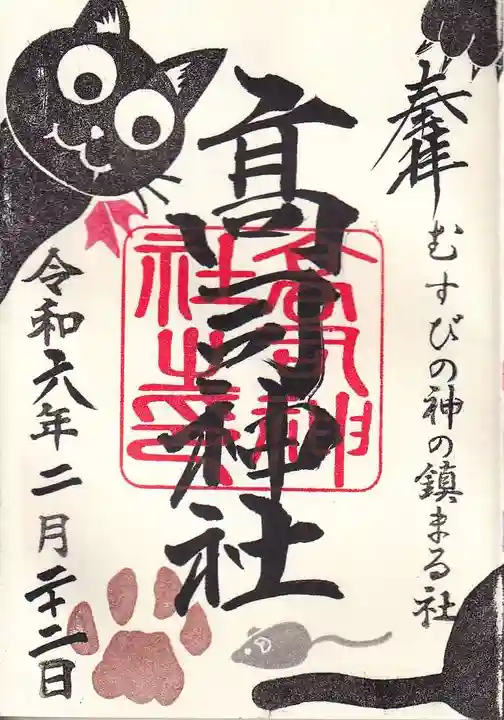 奉拝
むすびの神の鎮まる社
高司神社
高司神
社之印
令和六年二月二十二日